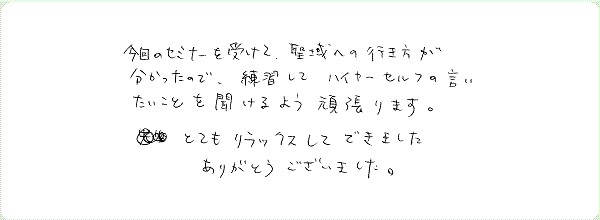 今回のセミナーを受けて、聖域への行き方が
分かったので、練習して ハイヤーセルフの言い
たいことを聞けるよう頑張ります。
とてもリラックスしてできました
ありがとうございました。